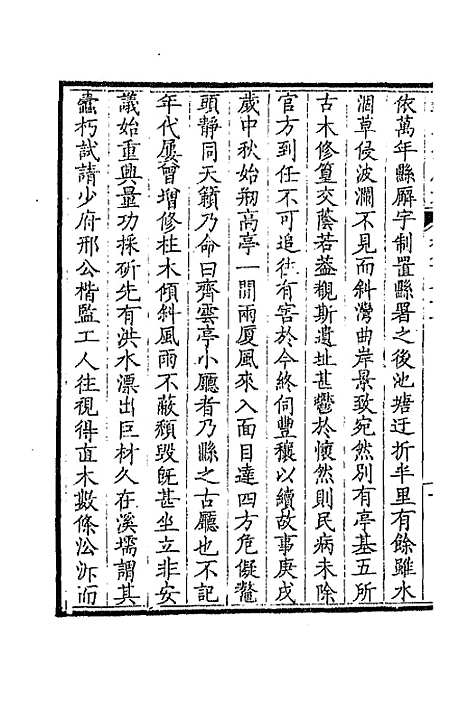 依萬年縣廨宇制置縣署之後池塘迂折半里有餘雖水
涸草侵波瀾不見而斜灣曲岸景致宛然別有亭基五所
古木修篁交蔭若蓋覩斯遺址甚鬱於懷然則民病未除
官方到任不可追往有害於今終伺豐穰以續故事庚戌
歲中秋始剏高亭一間兩厦風來入面目達四方危儗鼇
頭靜同天籟乃命曰齊雲亭小廳者乃縣之古廳也不記
年代屢曾增修柱木傾斜風雨不蔽頽毀旣甚坐立非安
議始重興量功採斫先有洪水漂出巨材久在溪壖謂其
蠹朽試請少府邢公楷監工人往視得直木數條㳂泝而